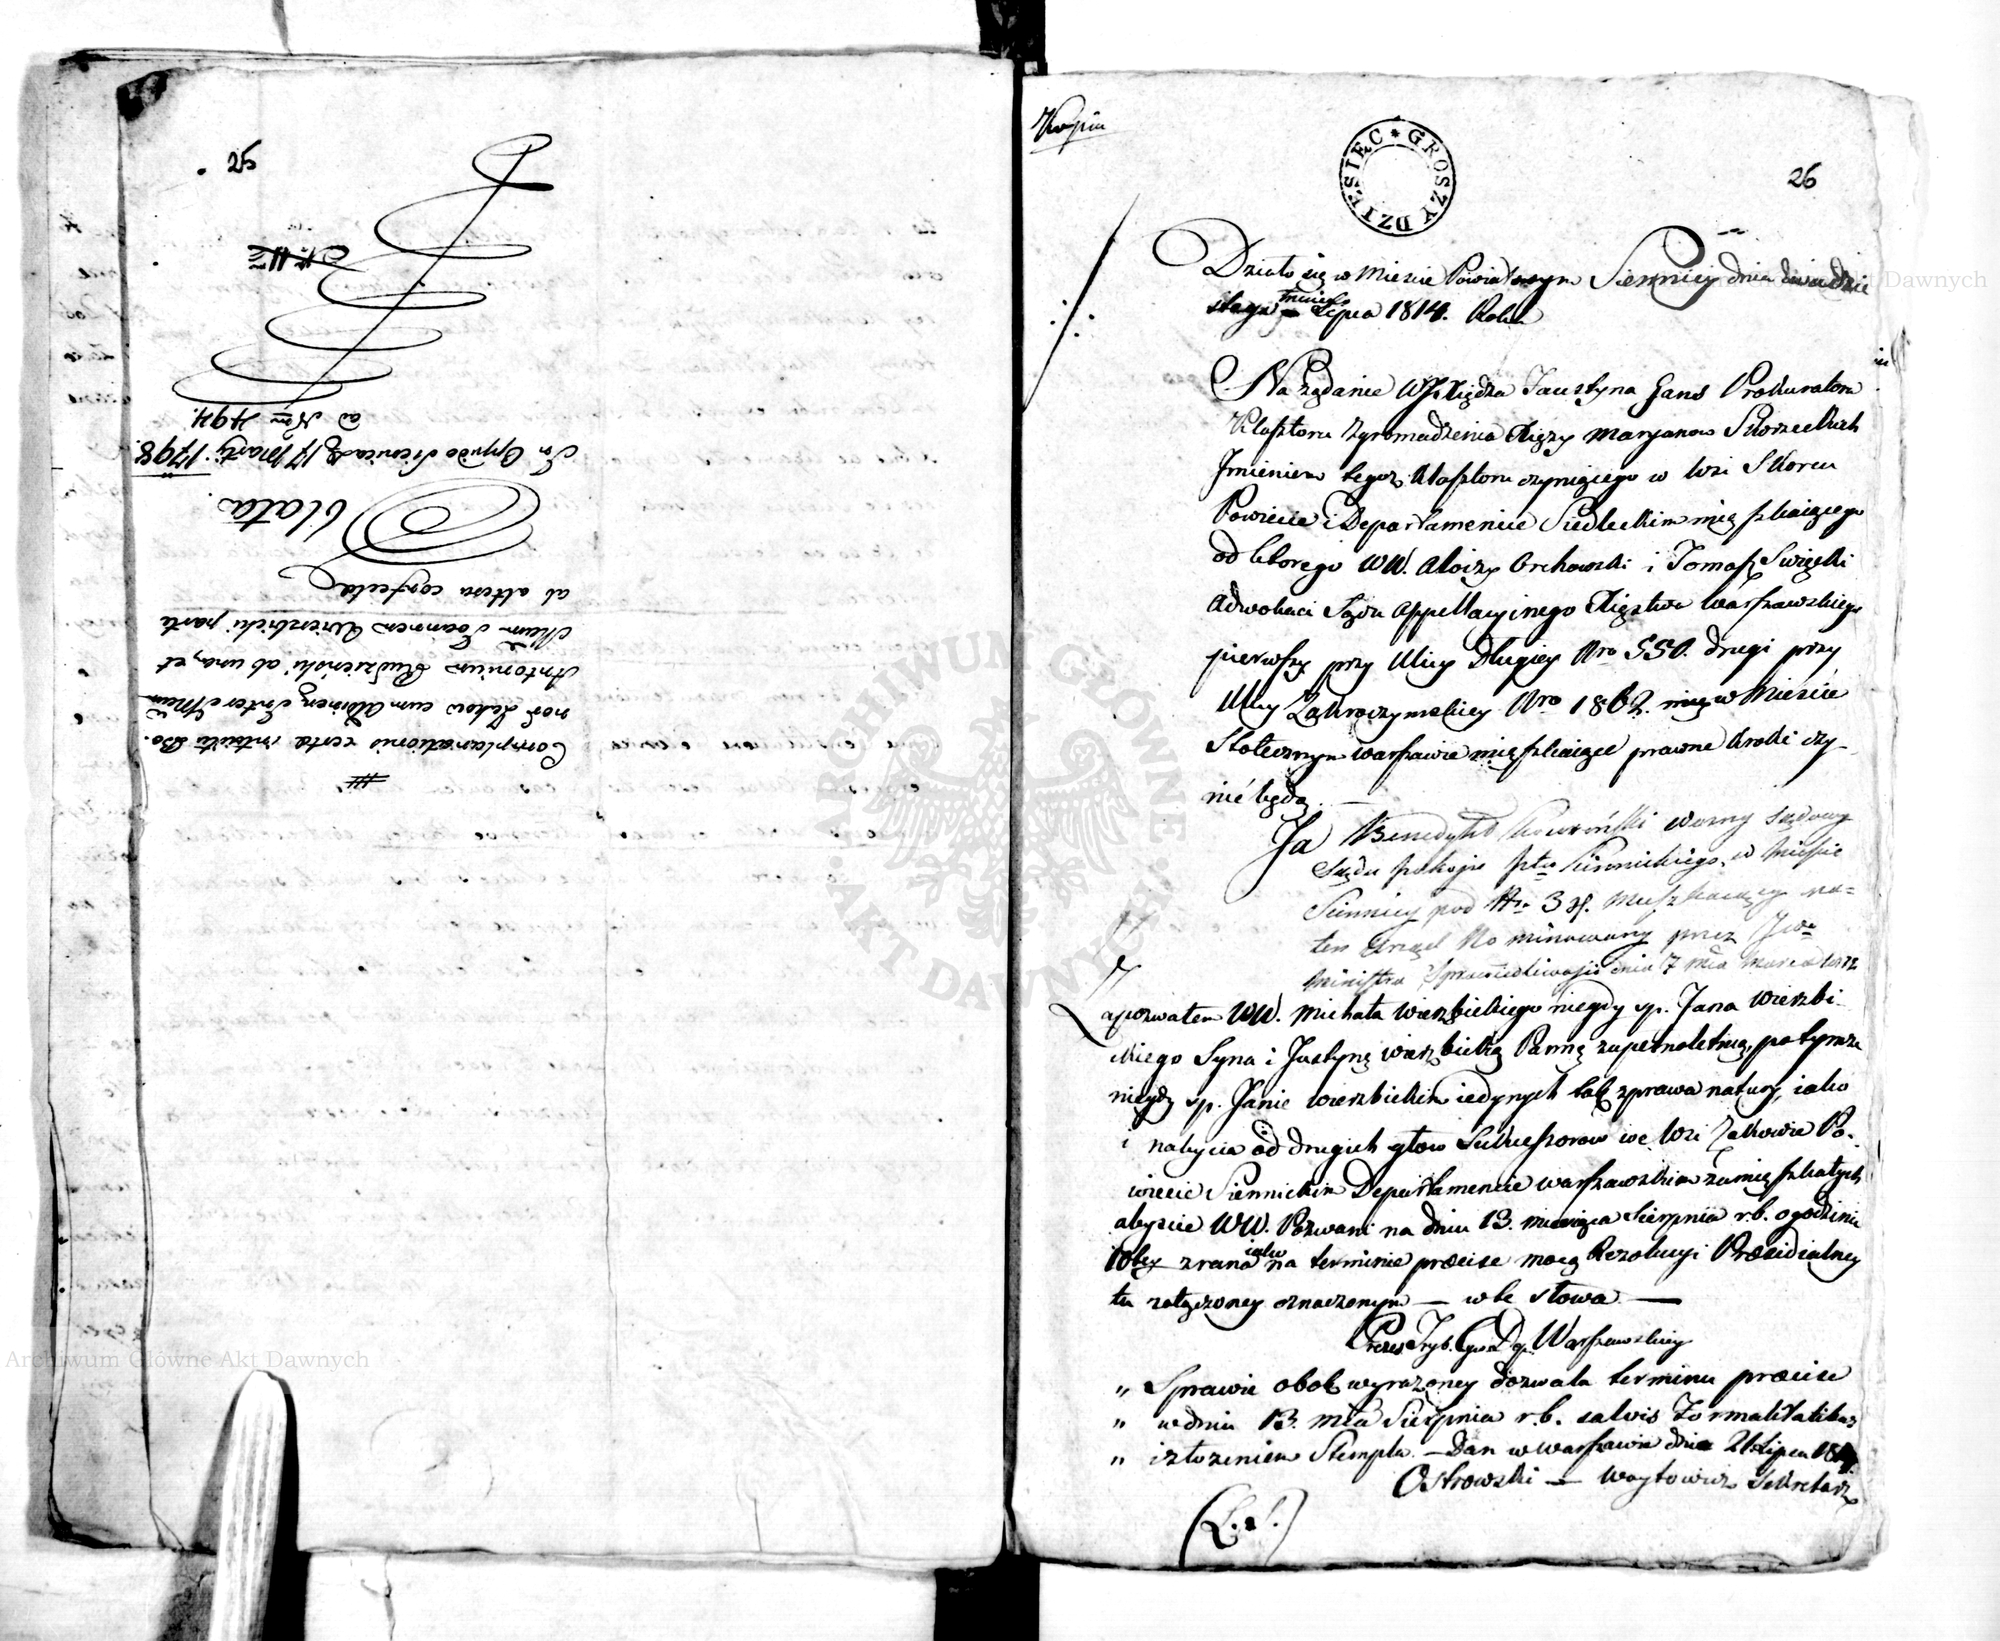 25
Nr 11
Complanationis certo intuitu Bo-
nor Łękow cum Adinen. Inter Mcum
Antonium Rudzienski ab una, et
Mcum Joannem Wierzbicki parte
ab altera confecta
Oblata
In Oppido Siennica d. 17 Martij 1798.
ad Nrm 494.
Kopia
GROSZY DZIESIEC
26
Działo się w Mieście Powiatowym Siennicy dnia dwudzie
stego trzeciego Lipca 1814. Roku
Na żądanie WJX Xiędza Faustyna Gans Prokuratora
Klasztoru Zgromadzenia Xięży Maryanow Skorzeckich
Imieniem tegoż Klasztoru czyniącego w Wsi Skorcu
Powiecie i Departamencie Siedleckim mieszkaiącego
od ktorego WW. Aloizy Orchowski i Tomasz Swięcki
Adwokaci Sądu Appellacyinego Xięstwa Warszawskiego
pierwszy przy Ulicy Długiey Nro 550. drugi przy
Ulicy Zakroczymskiey Nro 1862. w Mieście
Stołecznym Warszawie mieszkaiące prawne kroki czy-
nić będą. —
Ja Benedykt woźny Sądowy
Sądu Pokoju Ptu Siennickiego, w Mieście
Siennicy pod Nro 34. Mieszkaiący na
ten Urząd Nominowany przez JWo
Ministra Sprawiedliwości dnia 7 Mca Marca
Zapozwałem WW. Michała Wierzbickiego niegdy sp. Jana Wierzbi
ckiego Syna i Justynę Wierzbicką Pannę zupełnoletnią, po tymże
niegdy sp. Janie Wierzbickim iedynych tak z prawa natury, iako
i nabycia od drugich głow Sukcessorow we Wsi Zakowie Po-
wiecie Siennickim Departamencie Warszawskim zamieszkałych
abyście WW. Pozwani na dniu 13. miesiąca Sierpnia r.b. o godzinie
10tey zrana iako na terminie præcise mocą Rezolucyi Præsidialney
tu załączoney oznaczonym — w te słowa —
Prezes Tryb. Cyw. Dep. Warszawskiey
„ Sprawie obok wyrażoney dozwala terminu præcise
„ w dniu 13. mca Sierpnia r.b. salvis Formalitatibus
„ i złożeniem Stempla. — Dan w Warszawie dnia 21 Lipca 1814.
Ostrowski — Woytowicz Sekretarz
(L.S.)
ARCHIWUM GŁÓWNE AKT DAWNYCH
Archiwum Główne Akt Dawnych
Dawnych